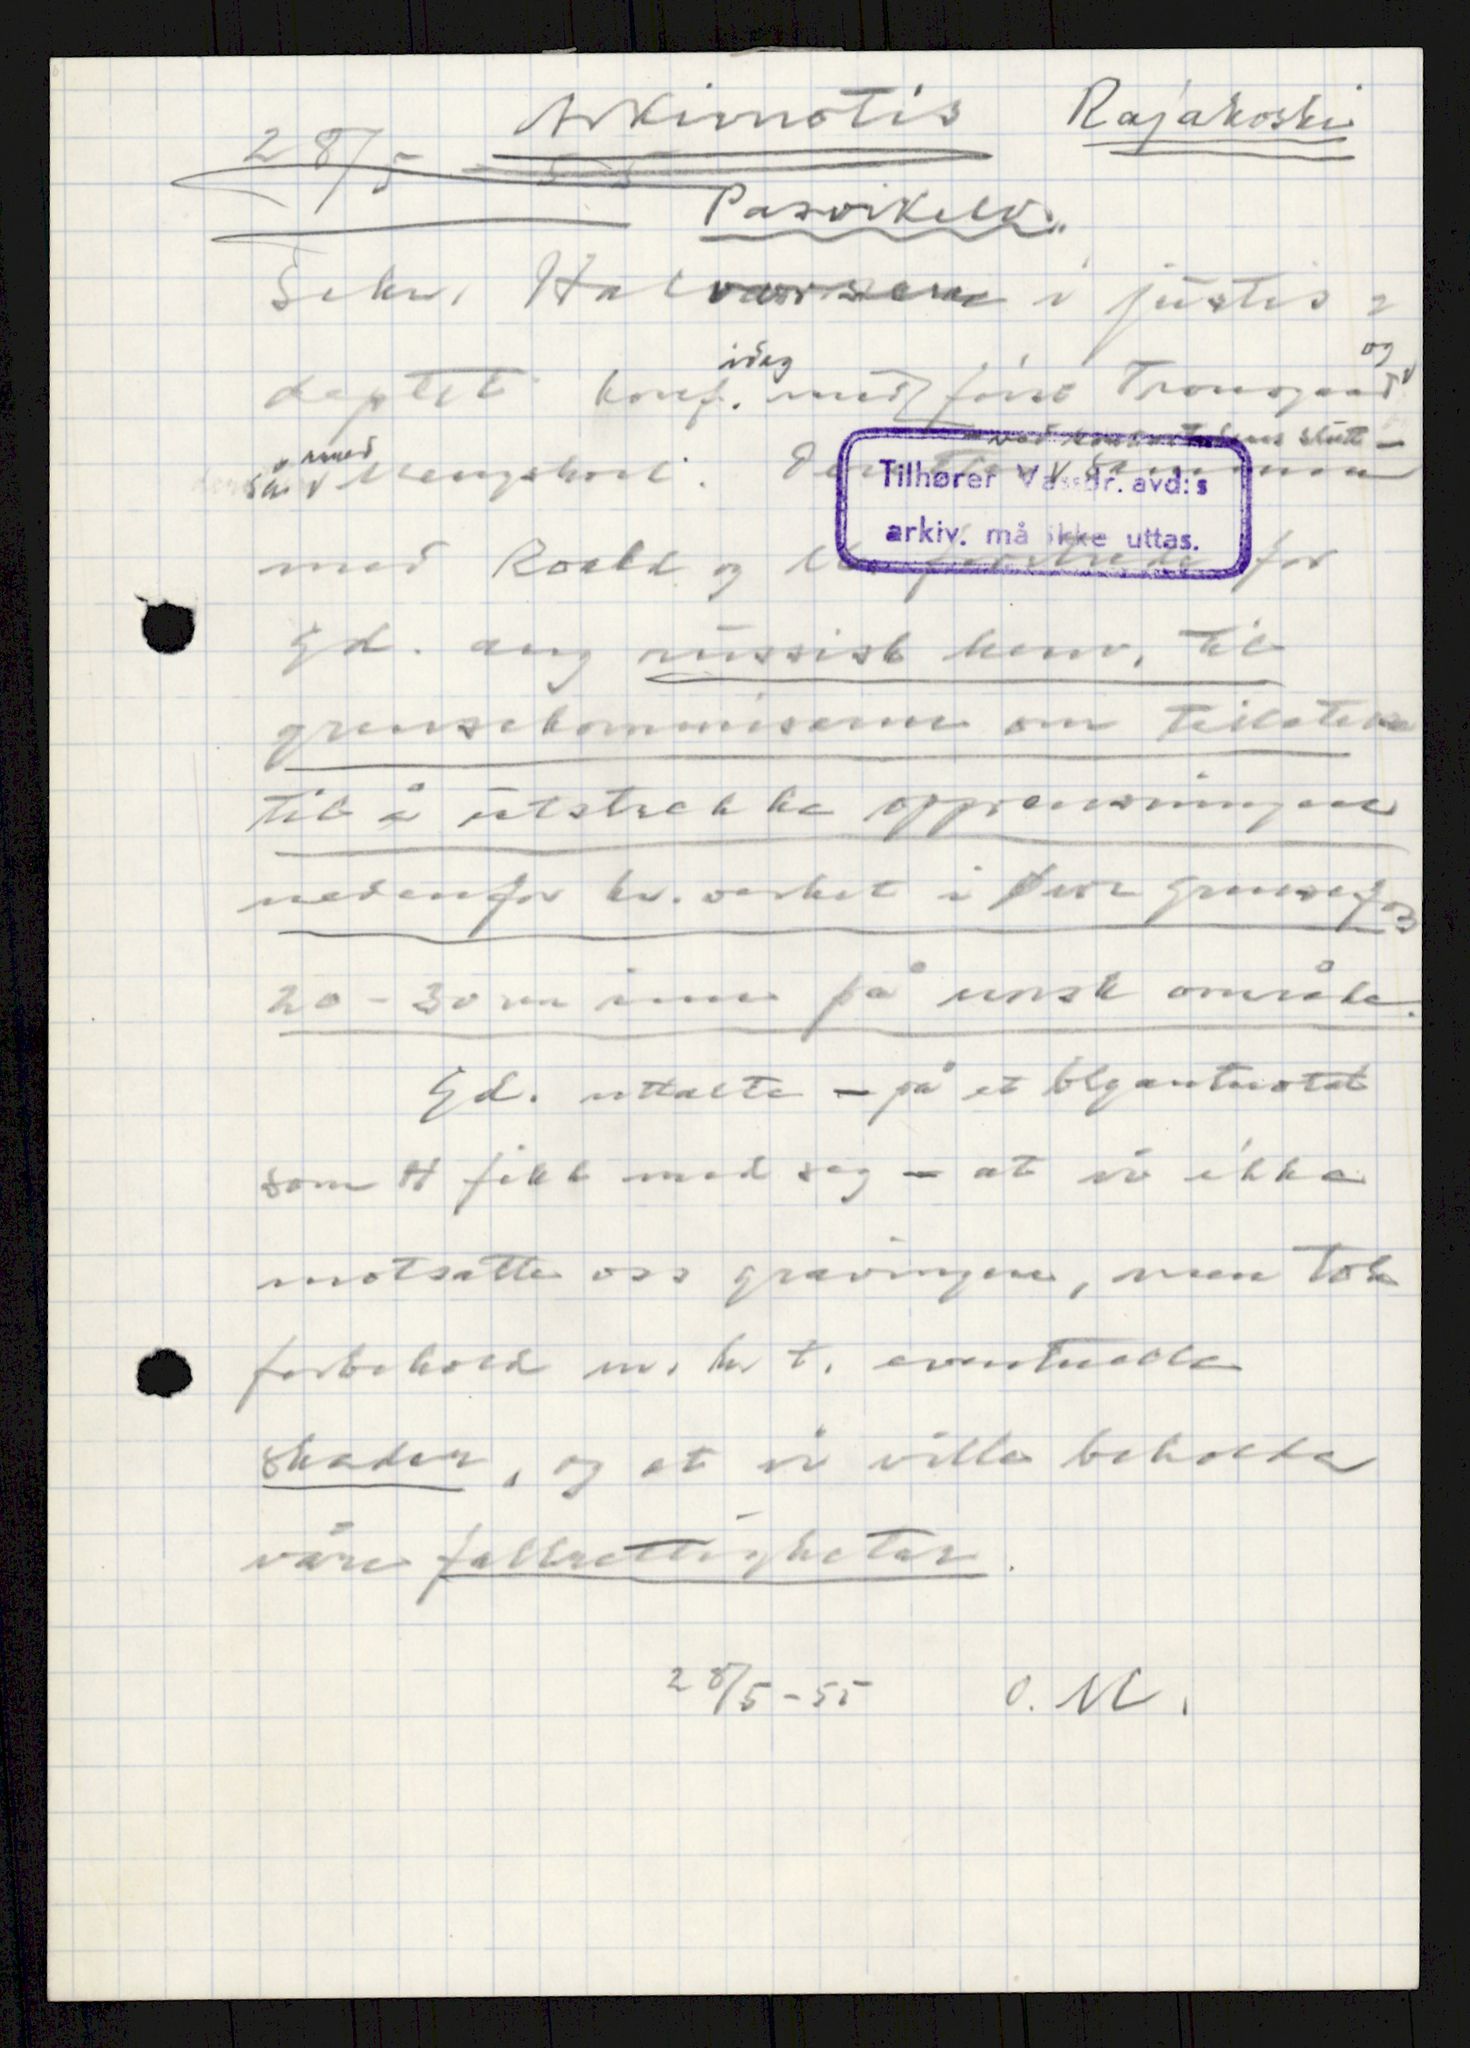 Arkivnotis Rajakoski
28/5 - 55
Pasvikelv.
Sekr. Halvorsen i justis-
deptet konf. idag med først Tronsgaard og
så med
ved konfransens slutt -
Tilhører Vassdr. avd:s
arkiv. må ikke uttas.
med Roald og for
Gd. ang russisk henv. til
grensekommisæren om tillatelse
til å utstrekke opprenskningene
nedenfor kr.verket i Øvre grensefoss
20 - 30 m inn på norsk område.
Gd. uttalte - på et blyantnotat
som H fikk med seg - at vi ikke
motsatte oss gravingen, men tok
forbehold m.h.t. eventuelle
skader, og at vi ville beholde
våre fallrettigheter.
28/5 - 55 O. M.